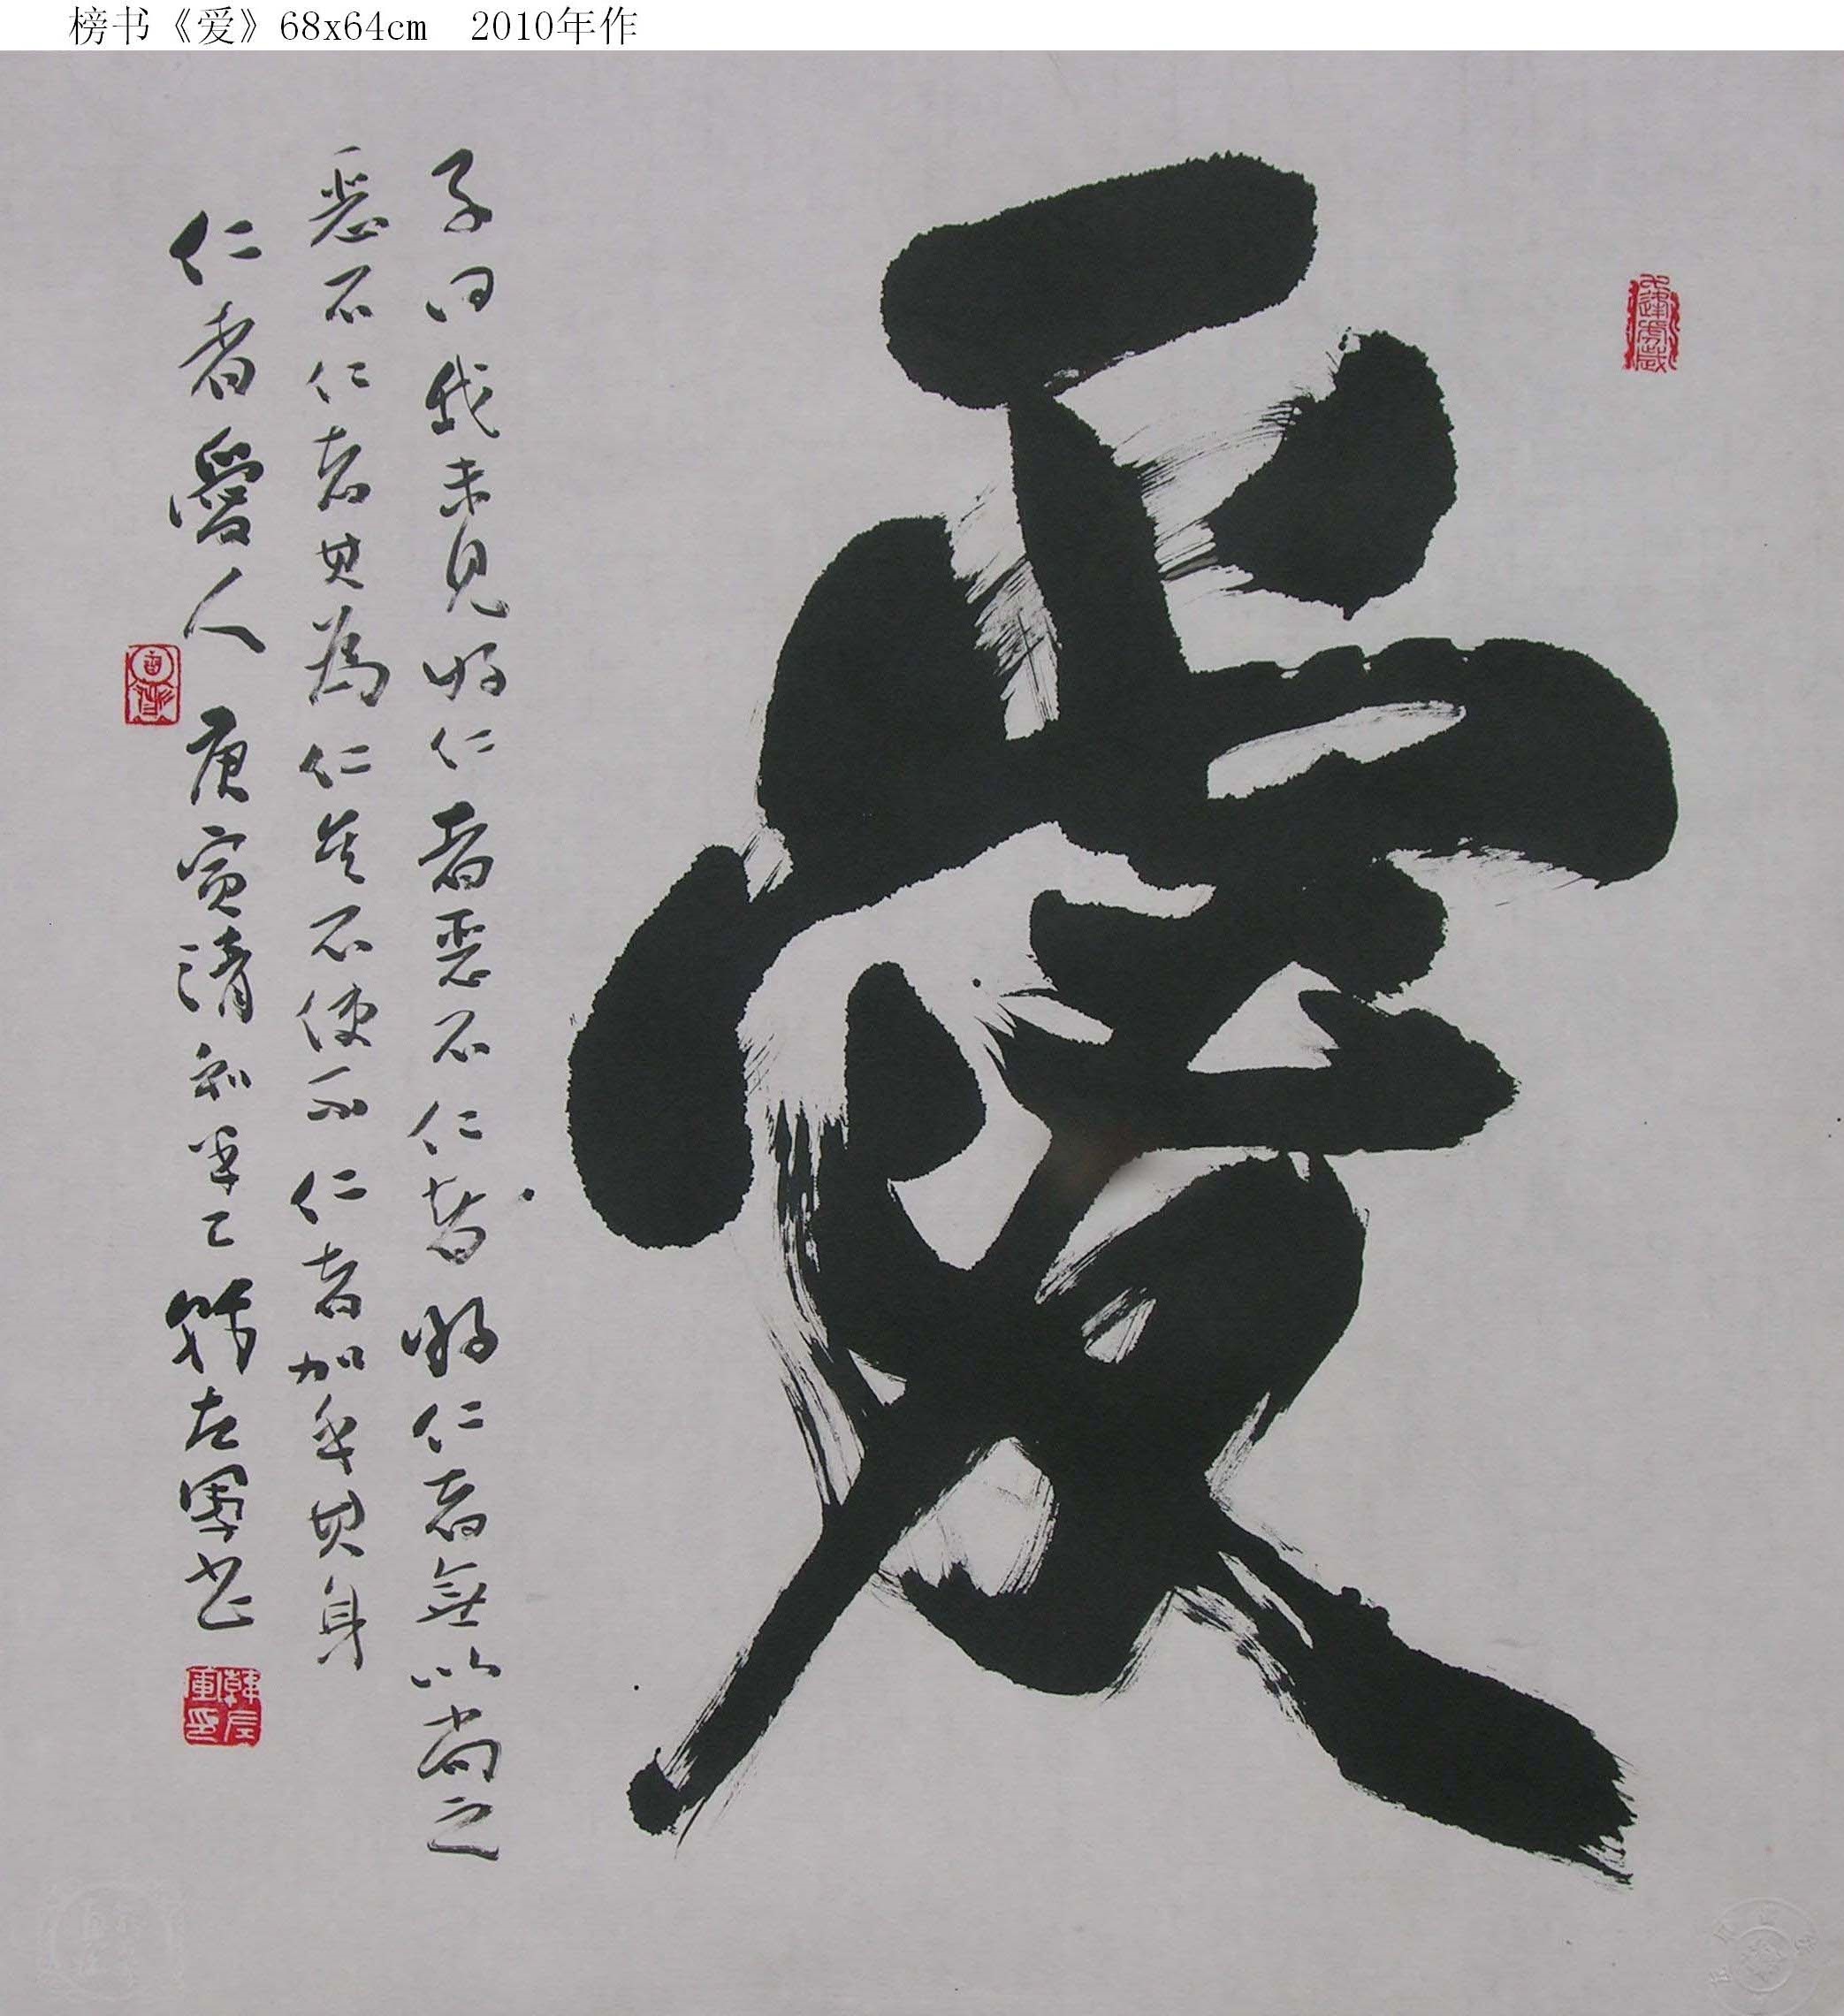 榜书《爱》68x64cm 2010年作
愛
子曰我未見好仁者惡不仁者好仁者無以尚之
惡不仁者其為仁矣不使不仁者加乎其身
仁者愛人 庚寅清和平之韓左軍书
韓左軍印